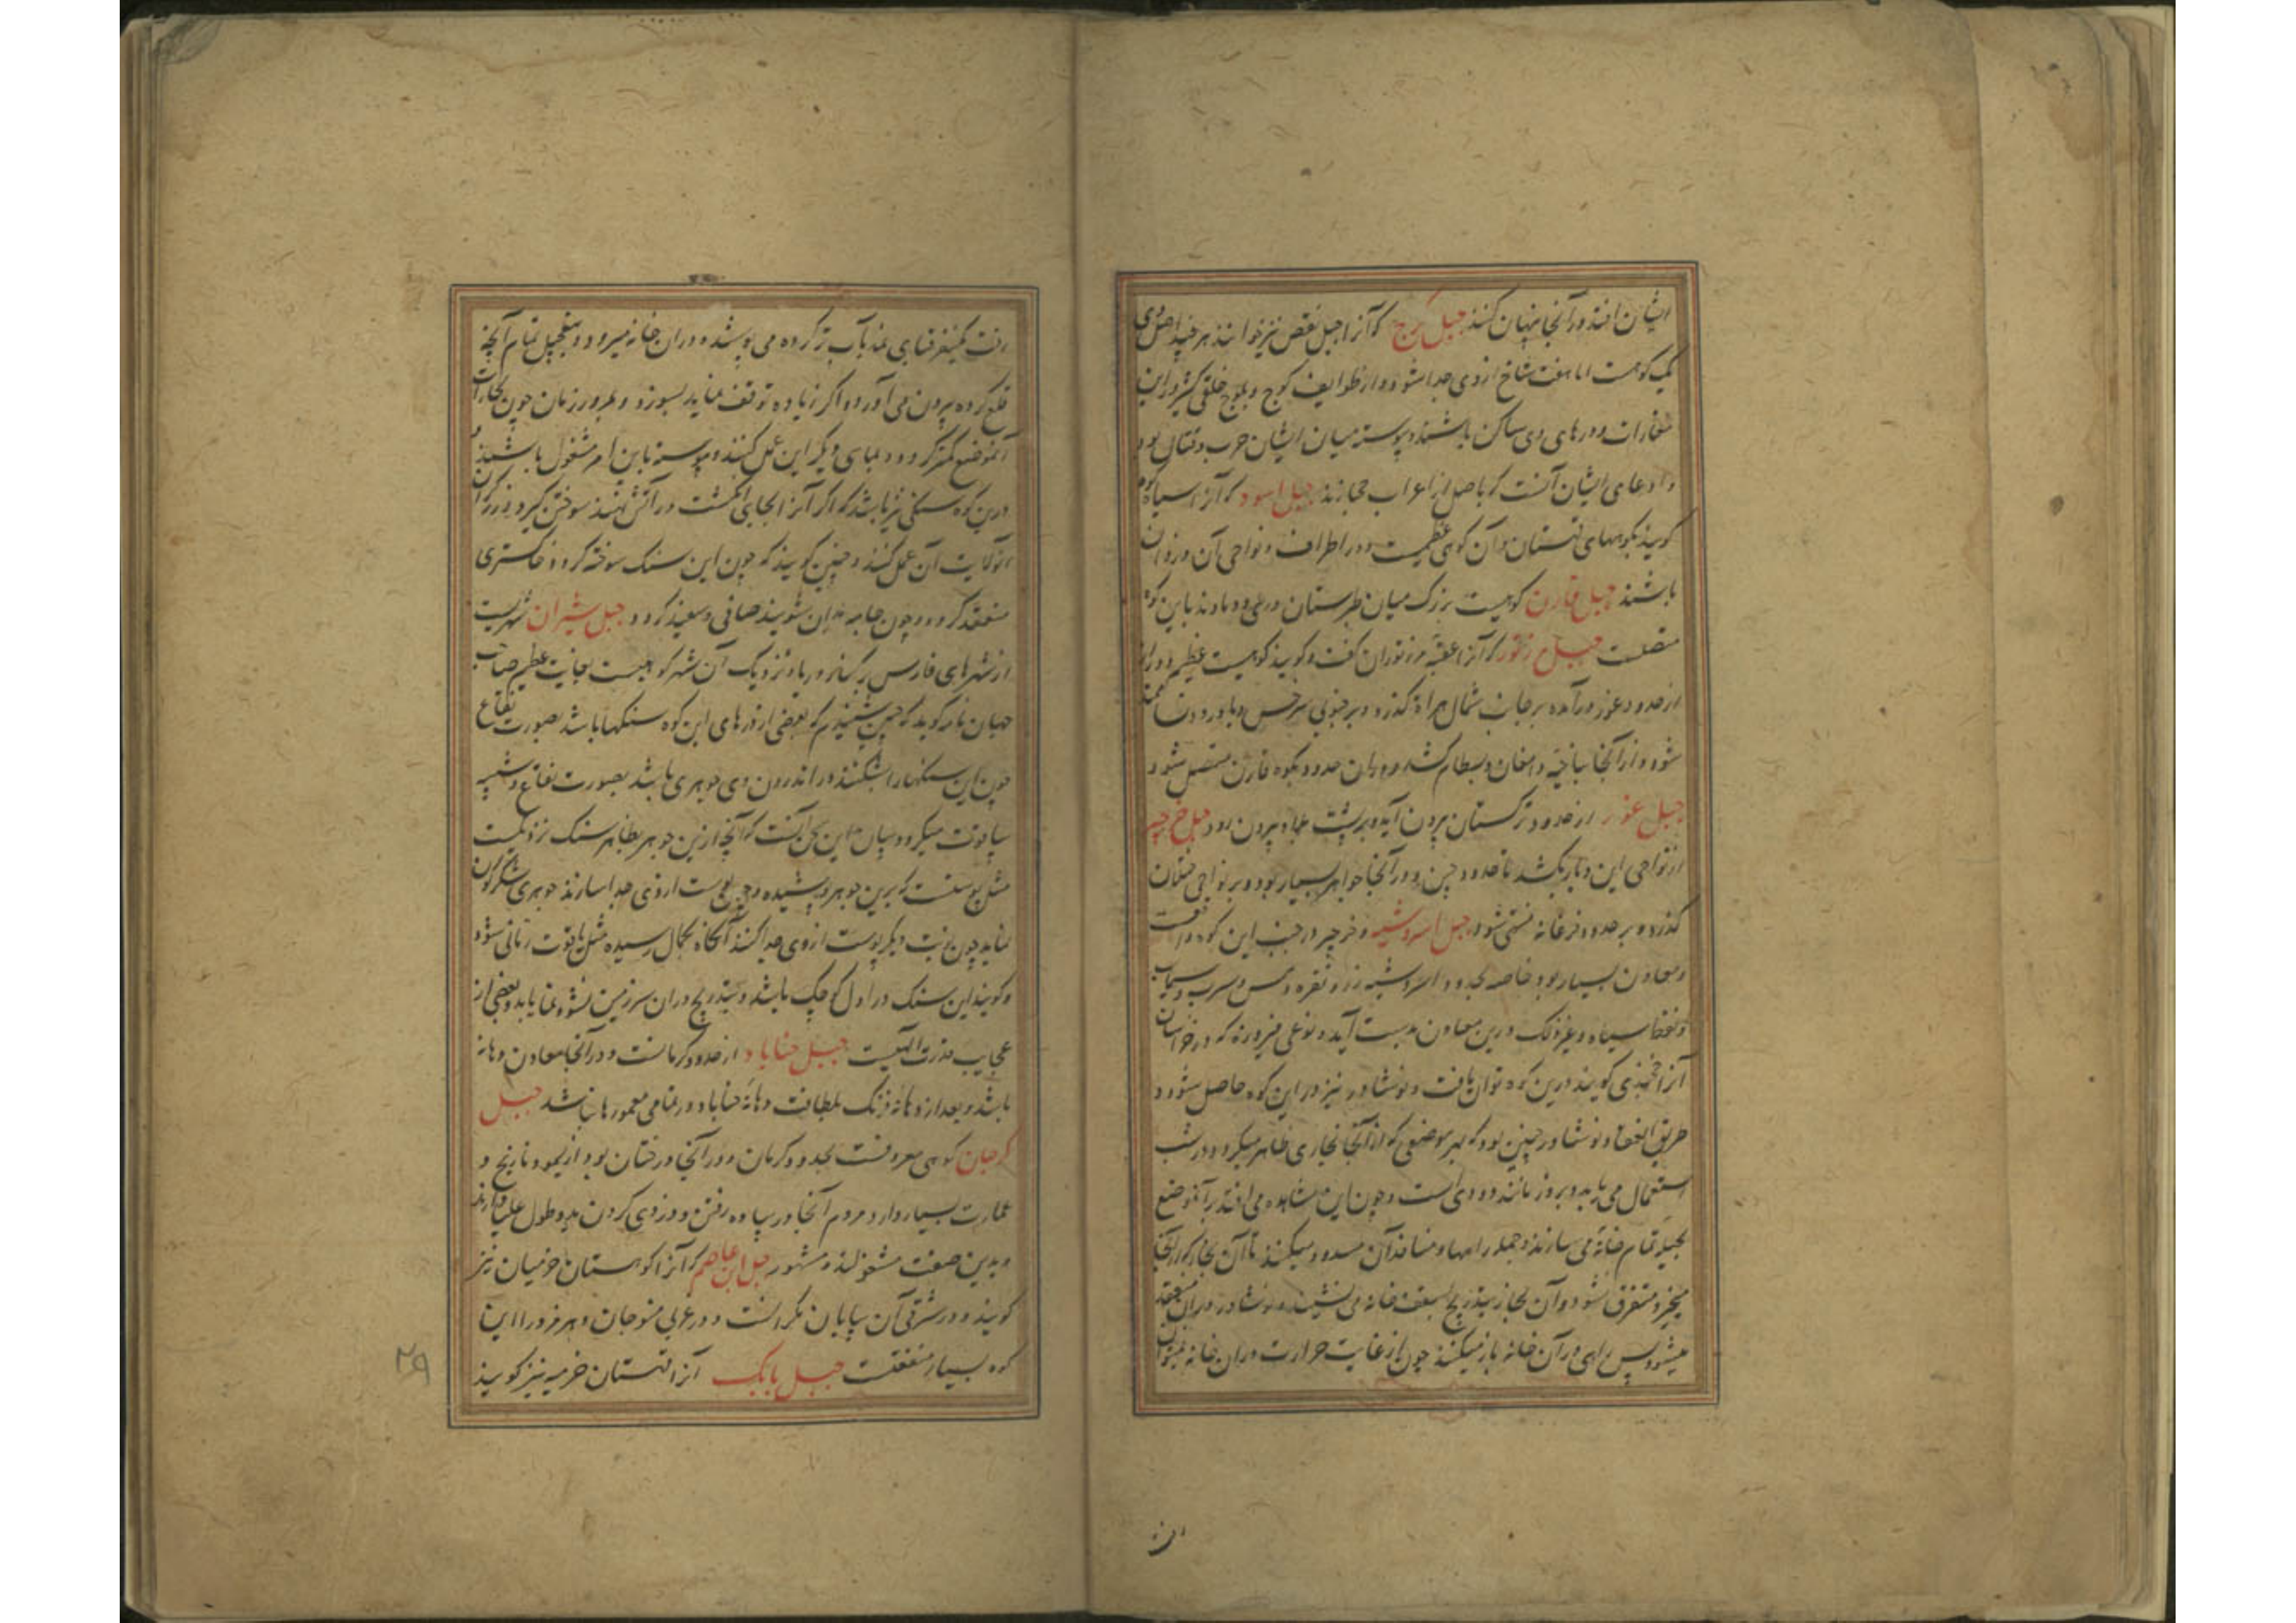 ایشان افتد در آنجا پنهان کنند جبل کرج که آنرا جبل قفص نیز خوانند هر چند اصل وی
یک کوهست اما هفت شاخ از وی جدا شود و از طوایف کوج و بلوج خلقی کثیر در این
مغارات و درهای وی ساکن باشند و پیوسته میان ایشان حرب و قتال بود
و ادعای ایشان آنست که باصل از اعراب حجازند جبل اسود که آنرا سیاه کوه
کویند بکوههای قهستان و آن کوهی عظیمست و در اطراف و نواحی آن دزدان
باشند جبل قارن کوهیست بزرک میان طبرستان و ری و دماوند باین کوه
متصلست جبل که آنرا عقبه کفت و کویند کوهیست عظیم و دراز
از حدود غور درآمده بر جانب شمال هراة کذرد و بر جنوبی سرخس و باورد
شود و از آنجا بناحیه دامغان و بسطام کشد و بدان حدود بکوه قارن متصل شود
جبل غور از حدود ترکستان برون آید و برپشت برون رود جبل
از نواحی این دیار بکشد تا حدود چین و در آنجا جواهر بسیار بود و بر نواحی ختلان
کذرد و بر حدود فرغانه منتهی شود جبل اسروشنه و در جنب این کوه واقعست
و معادن بسیار بود خاصه بحدود اسروشنه زر و نقره و مس و سرب و سیماب
و نفط سیاه و غیر ذلک درین معادن بدست آید و نوعی فیروزه که در خراسان
آنرا خجندی کویند درین کوه توان یافت و نوشادر نیز در این کوه حاصل شود و
طریق انعقاد نوشادر چنین بود که بهر موضعی که از آنجا بخاری ظاهر میکردد در شب
اشتعال می یابد و بروز مانند دودی است و چون این مشاهده می افتد بر آنموضع
بحیله تمام خانه می سازند و جمله راهها و منافذ آن مسدود میکنند تا آن بخار که از آنجا
میخیزد متفرق نشود و آن بخار بتدریج بسقف خانه می نشیند و نوشادر در آن منعقد
میشود پس راهی در آن خانه باز میکنند چون از غایت حرارت در آن خانه نمیتوان
رفت کینفر قبایی نمد بآب تر کرده می پوشد و در آن خانه میرود و بتعجیل تمام آنچه
قلع کرده برون می آورد و اکر زیاده توقف نماید بسوزد و بمرور زمان چون بخارات
آنموضع کمتر کردد بجای دیکر این عمل کنند و پیوسته باین امر مشغول باشند و
درین کوه سنکی نیز باشد که اکر آنرا بجای انکشت در آتش نهند سوختن کیرد
عمل کنند و چنین کویند که چون این سنک سوخته کردد خاکستری
منعقد کردد و چون جامه بدان شویند صافی و سفید کردد جبل شیران شهریست
از شهرهای فارس بر کنار دریا و نزدیک آن شهر کوهیست بغایت عظیم صاحب
جهان نامه کوید که چنین شنیدم که بعضی از درهای این کوه سنکها باشد بصورت فقاع
چون این سنکها را بشکنند در اندرون وی جوهری باشد بصورت فقاع و شبیه
بیاقوت میکردد و بیان این سخن آنست که آنچه ازین جوهر بظاهر سنک نزدیکست
مثل پوستست که برین جوهر پوشیده و چون پوست از وی جدا سازند جوهری شکرکون
نماید چون نوبت دیکر پوست از وی جدا کنند آنکاه بکمال رسیده مثل یاقوت رمانی شود
و کویند این سنک در اول کوچک باشد و بتدریج در آن سرزمین نشو و نما یابد و بعضی از
عجایب قدرت الهیست جبل خناباد از حدود کرمانست و در آنجا معادن دهانه
باشد و بعد از دهانه فرنک بلطافت دهانه خناباد در تمامی معمورها نباشد جبل
کرجیان کوهی معروفست بحدود کرمان و در آنجا درختان بود از لیمو و نارنج و
عمارت بسیار دارد و مردم آنجا در پیاده رفتن و دزدی کردن ید و طول علیا دارند
و بدین صفت مشغولند و مشهور جبل ابی عاصم که آنرا کوهستان خرمیان نیز
کویند و در شرقی آن بیابان مکرانست و در غربی منوجان و هرمز و را این
کوه بسیار منفعتست جبل بابک آنرا قهستان خرمیه نیز کویند
۲۹